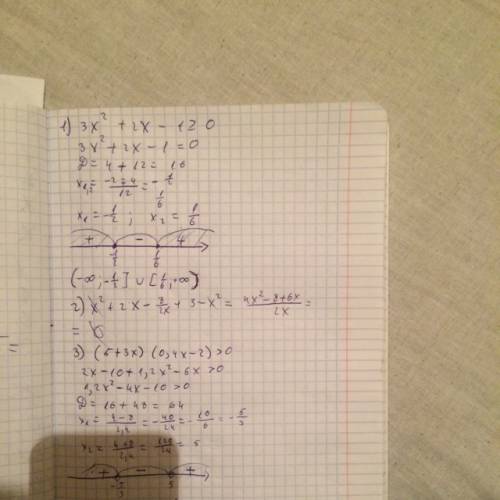 1) 3x² + 2x - 1 ≥ 0
3x² + 2x - 1 = 0
D = 4 + 12 = 16
x₁,₂ = (-2 ± 4)/12 = -1/2
1/6
x₁ = -1/2 ; x₂ = 1/6
+ - +
1/2 1/6
(-∞; -1/2] ∪ [1/6; +∞)
2) x² + 2x - 8/2x + 3 - x² = (4x² - 8 + 6x)/2x =
=
3) (5+3x) (0,4x-2) > 0
2x - 10 + 1,2x² - 6x > 0
1,2x² - 4x - 10 > 0
D = 16 + 48 = 64
x₁ = (4-8)/2,4 = -40/24 = -10/6 = -5/3
x₂ = (4+8)/2,4 = 120/24 = 5
+ - +
-5/3 5
=